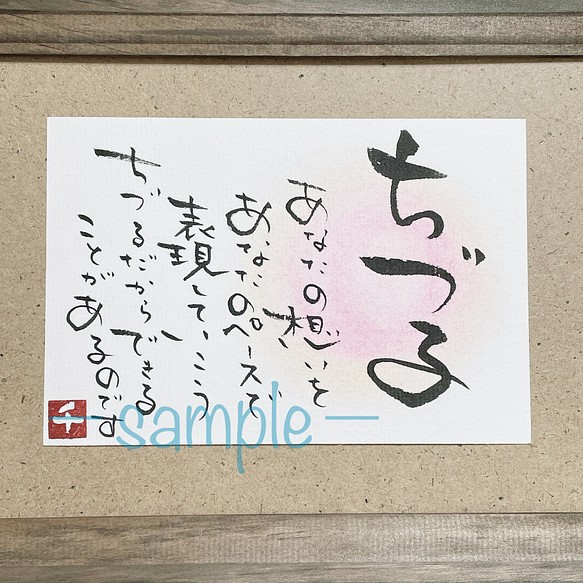 ちづる
あなたの想いを
あなたのペースで
表現していこう
ちづるだからできる
ことがあるのです
千
sample